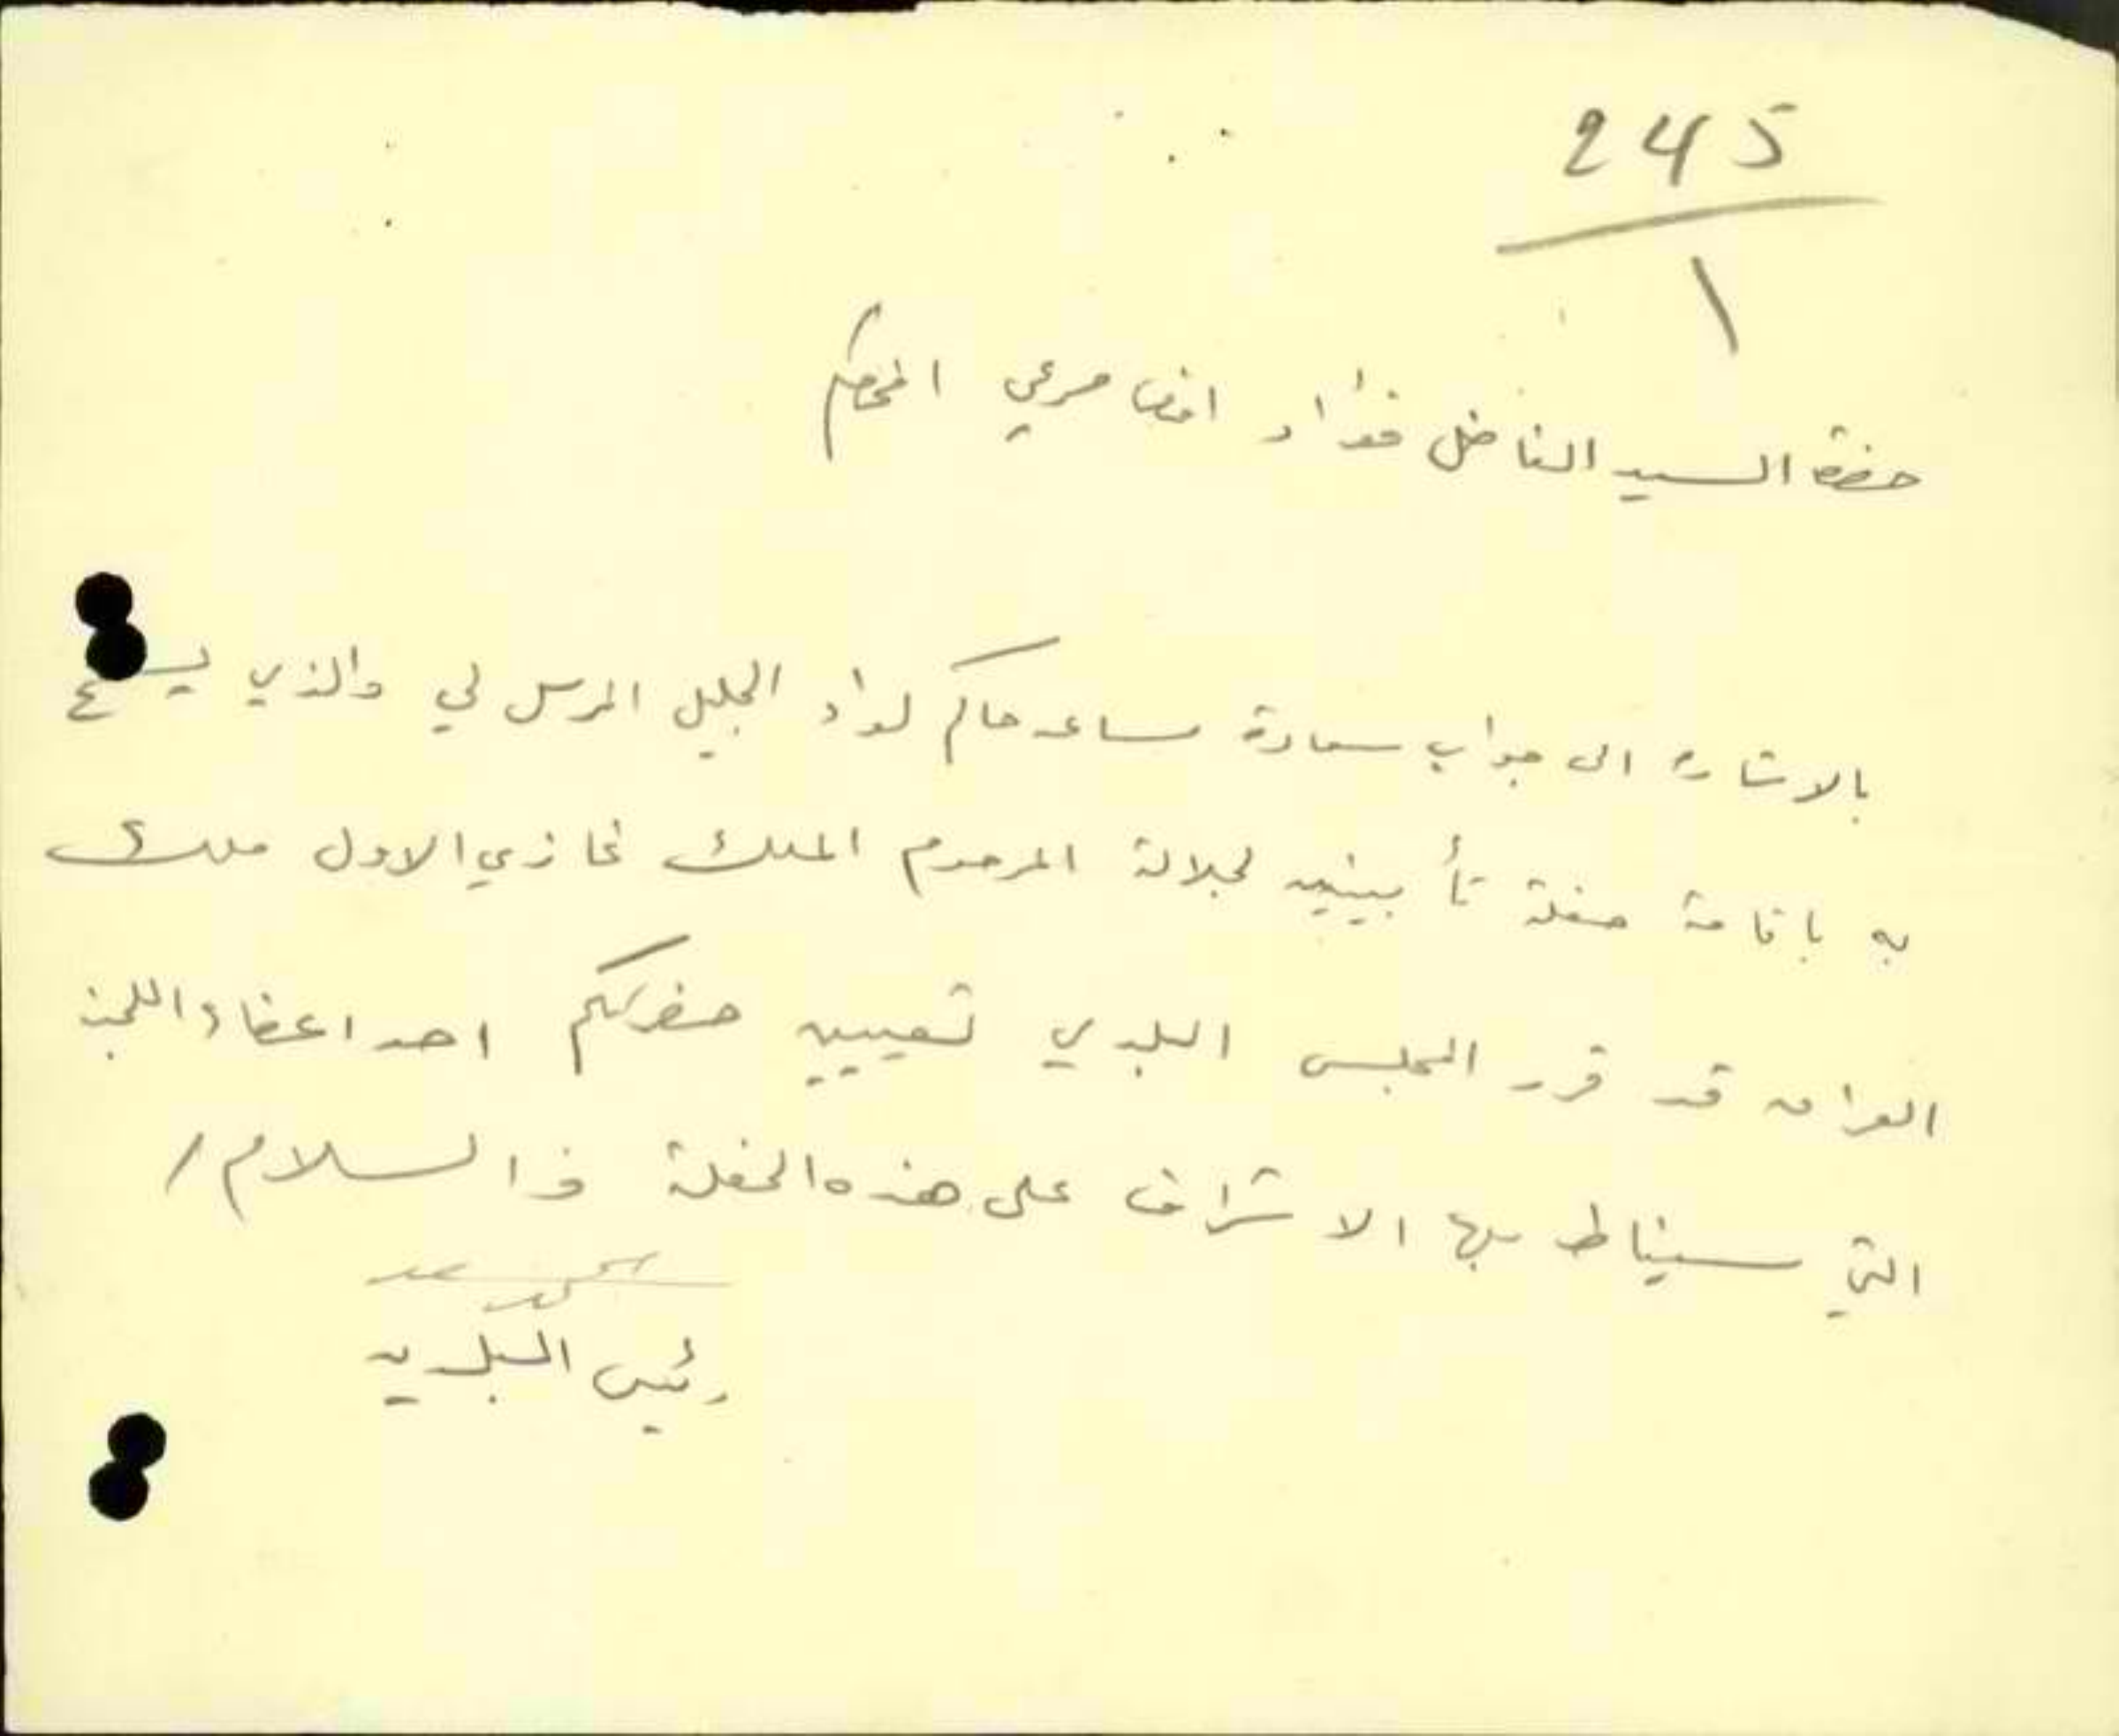 245
١
حضرة السيد الفاضل فؤاد افندي مرعي المحترم
بالاشارة الى جواب سعادة مساعد حاكم لواء الجليل المرسل لي والذي
به باقامة حفلة تأبينيه لجلالة المرحوم الملك غازي الاول ملك
العراق قد قرر المجلس البلدي تعيين حضرتكم احد اعضاء اللجنة
التي سيناط بها الاشراف على هذه الحفلة والسلام /
رئيس البلديه